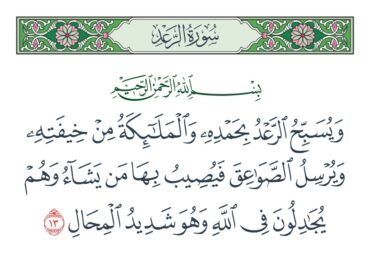 سُورَةُ الرَّعْدِ
بِسْمِ اللَّهِ الرَّحْمَٰنِ الرَّحِيمِ
وَيُسَبِّحُ ٱلرَّعْدُ بِحَمْدِهِۦ وَٱلْمَلَـٰٓئِكَةُ مِنْ خِيفَتِهِۦ
وَيُرْسِلُ ٱلصَّوَٰعِقَ فَيُصِيبُ بِهَا مَن يَشَآءُ وَهُمْ
يُجَـٰدِلُونَ فِى ٱللَّهِ وَهُوَ شَدِيدُ ٱلْمِحَالِ ١٣